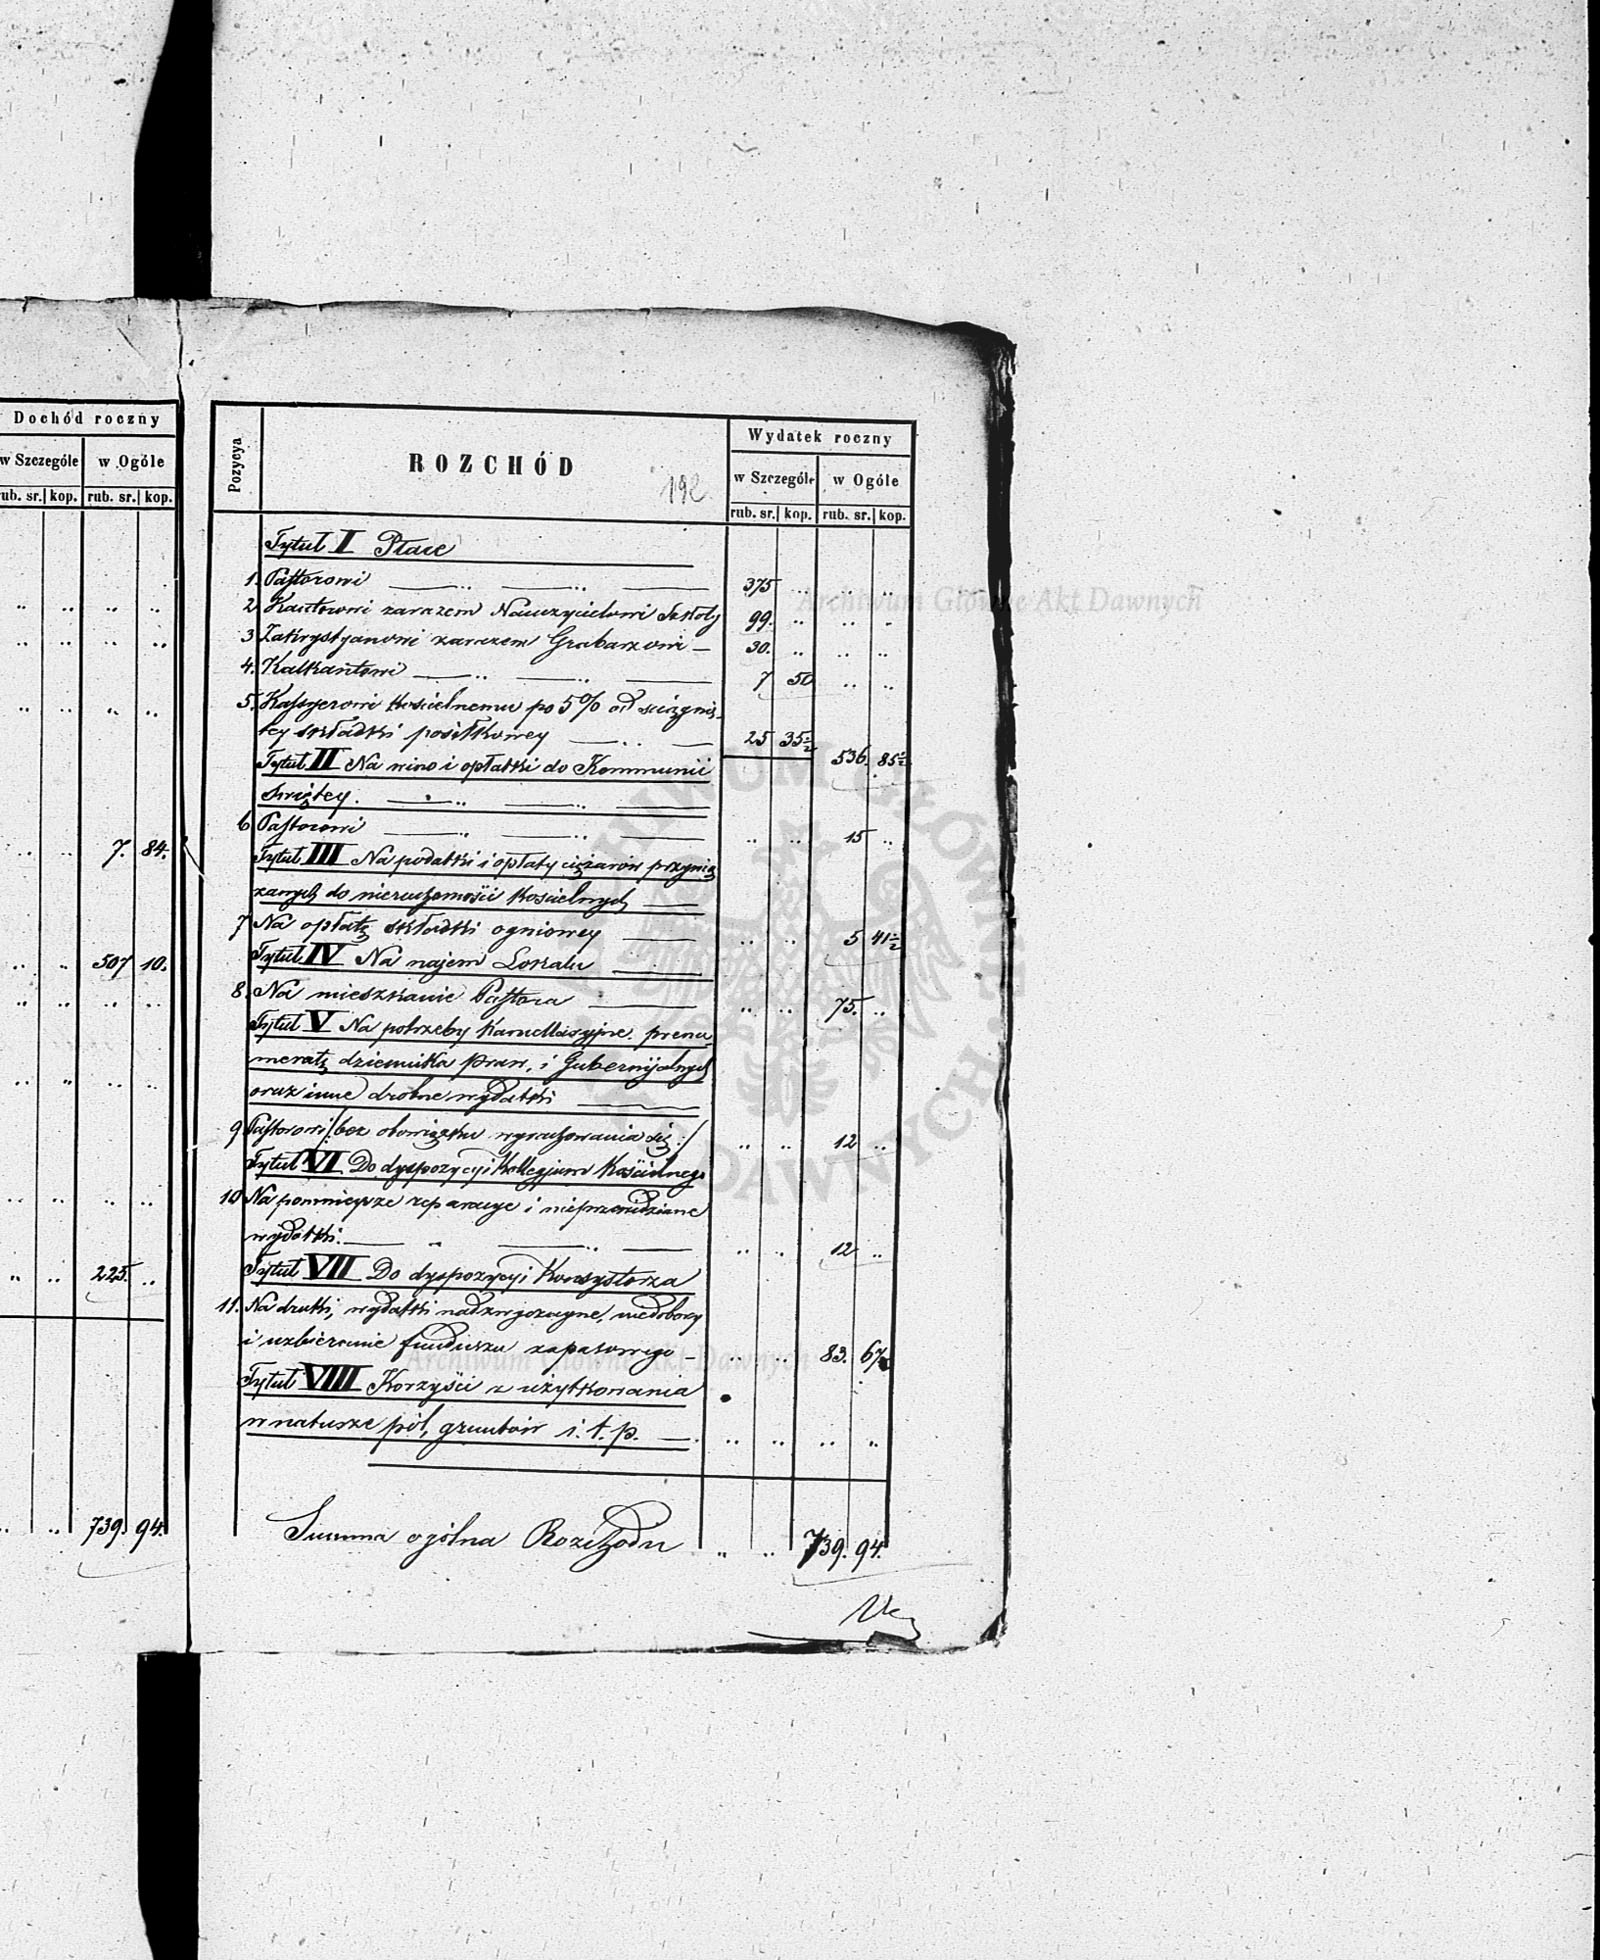 Dochód roczny
w Szczególe w Ogóle
rub. sr. kop. rub. sr. kop.
7. 84.
507 10.
225. ..
739. 94.
Pozycya
ROZCHÓD
192
Wydatek roczny
w Szczególe w Ogóle
rub. sr. kop. rub. sr. kop.
Tytuł I Płace
1. Pastorowi 375 .. .. ..
2 Kantorowi zarazem Nauczycielowi Szkoły 99. .. .. ..
3 Zakrystyanowi zarazem Grabarzowi — 30. .. .. ..
4. Kalkantowi 7 50 .. ..
5. Kassyerowi Kościelnemu po 5% od ściągnię-
tey składki posiłkowey 25 35½ 536. 85½
Tytuł II Na wino i opłatki do Kommunii
Świętey.
6 Pastorowi .. .. 15 ..
Tytuł III Na podatki i opłaty ciężarów przywią
zanych do nieruchomości Kościelnych
7 Na opłatę składki ogniowey .. .. 5 41½
Tytuł IV Na najem Lokalu
8. Na mieszkanie Pastora .. .. 75. ..
Tytuł V Na potrzeby Kancellaryjne, prenu-
meratę dziennika Praw, i Gubernijalnych
oraz inne drobne wydatki
9 Pastorowi /: bez obowiązku wyrachowania się :/ .. .. 12 ..
Tytuł VI Do dyspozycyi Kollegjum Kościelnego
10 Na pomniejsze reparacye i nieprzewidziane
wydatki. .. .. 12 ..
Tytuł VII Do dyspozycyi Konsystorza
11. Na druki, wydatki nadzwyczayne, niedobory
i uzbieranie funduszu zapasowego — .. .. 83. 67
Tytuł VIII Korzyści z użytkowania
w naturze pól, gruntów i. t. p. — .. .. .. ..
Summa ogólna Rozchodu .. .. 739. 94.
Archiwum Główne Akt Dawnych
ARCHIWUM GŁÓWNE AKT DAWNYCH
Archiwum Główne Akt Dawnych